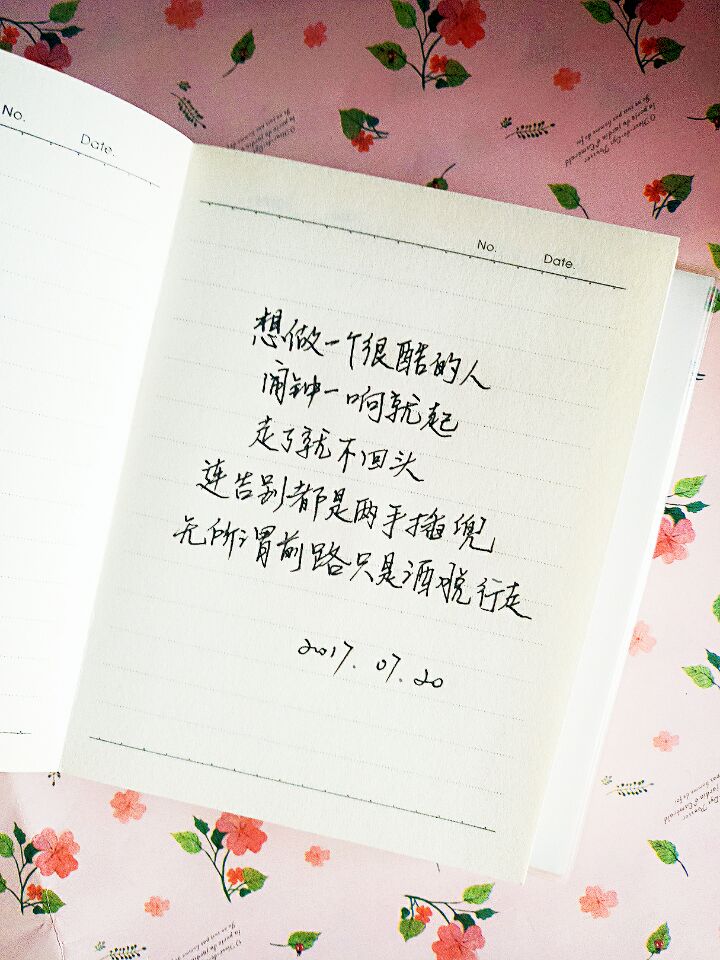 No. Date.
No. Date.
想做一个很酷的人
闹钟一响就起
走了就不回头
连告别都是两手插兜
无所谓前路只是洒脱行走
2017.07.20